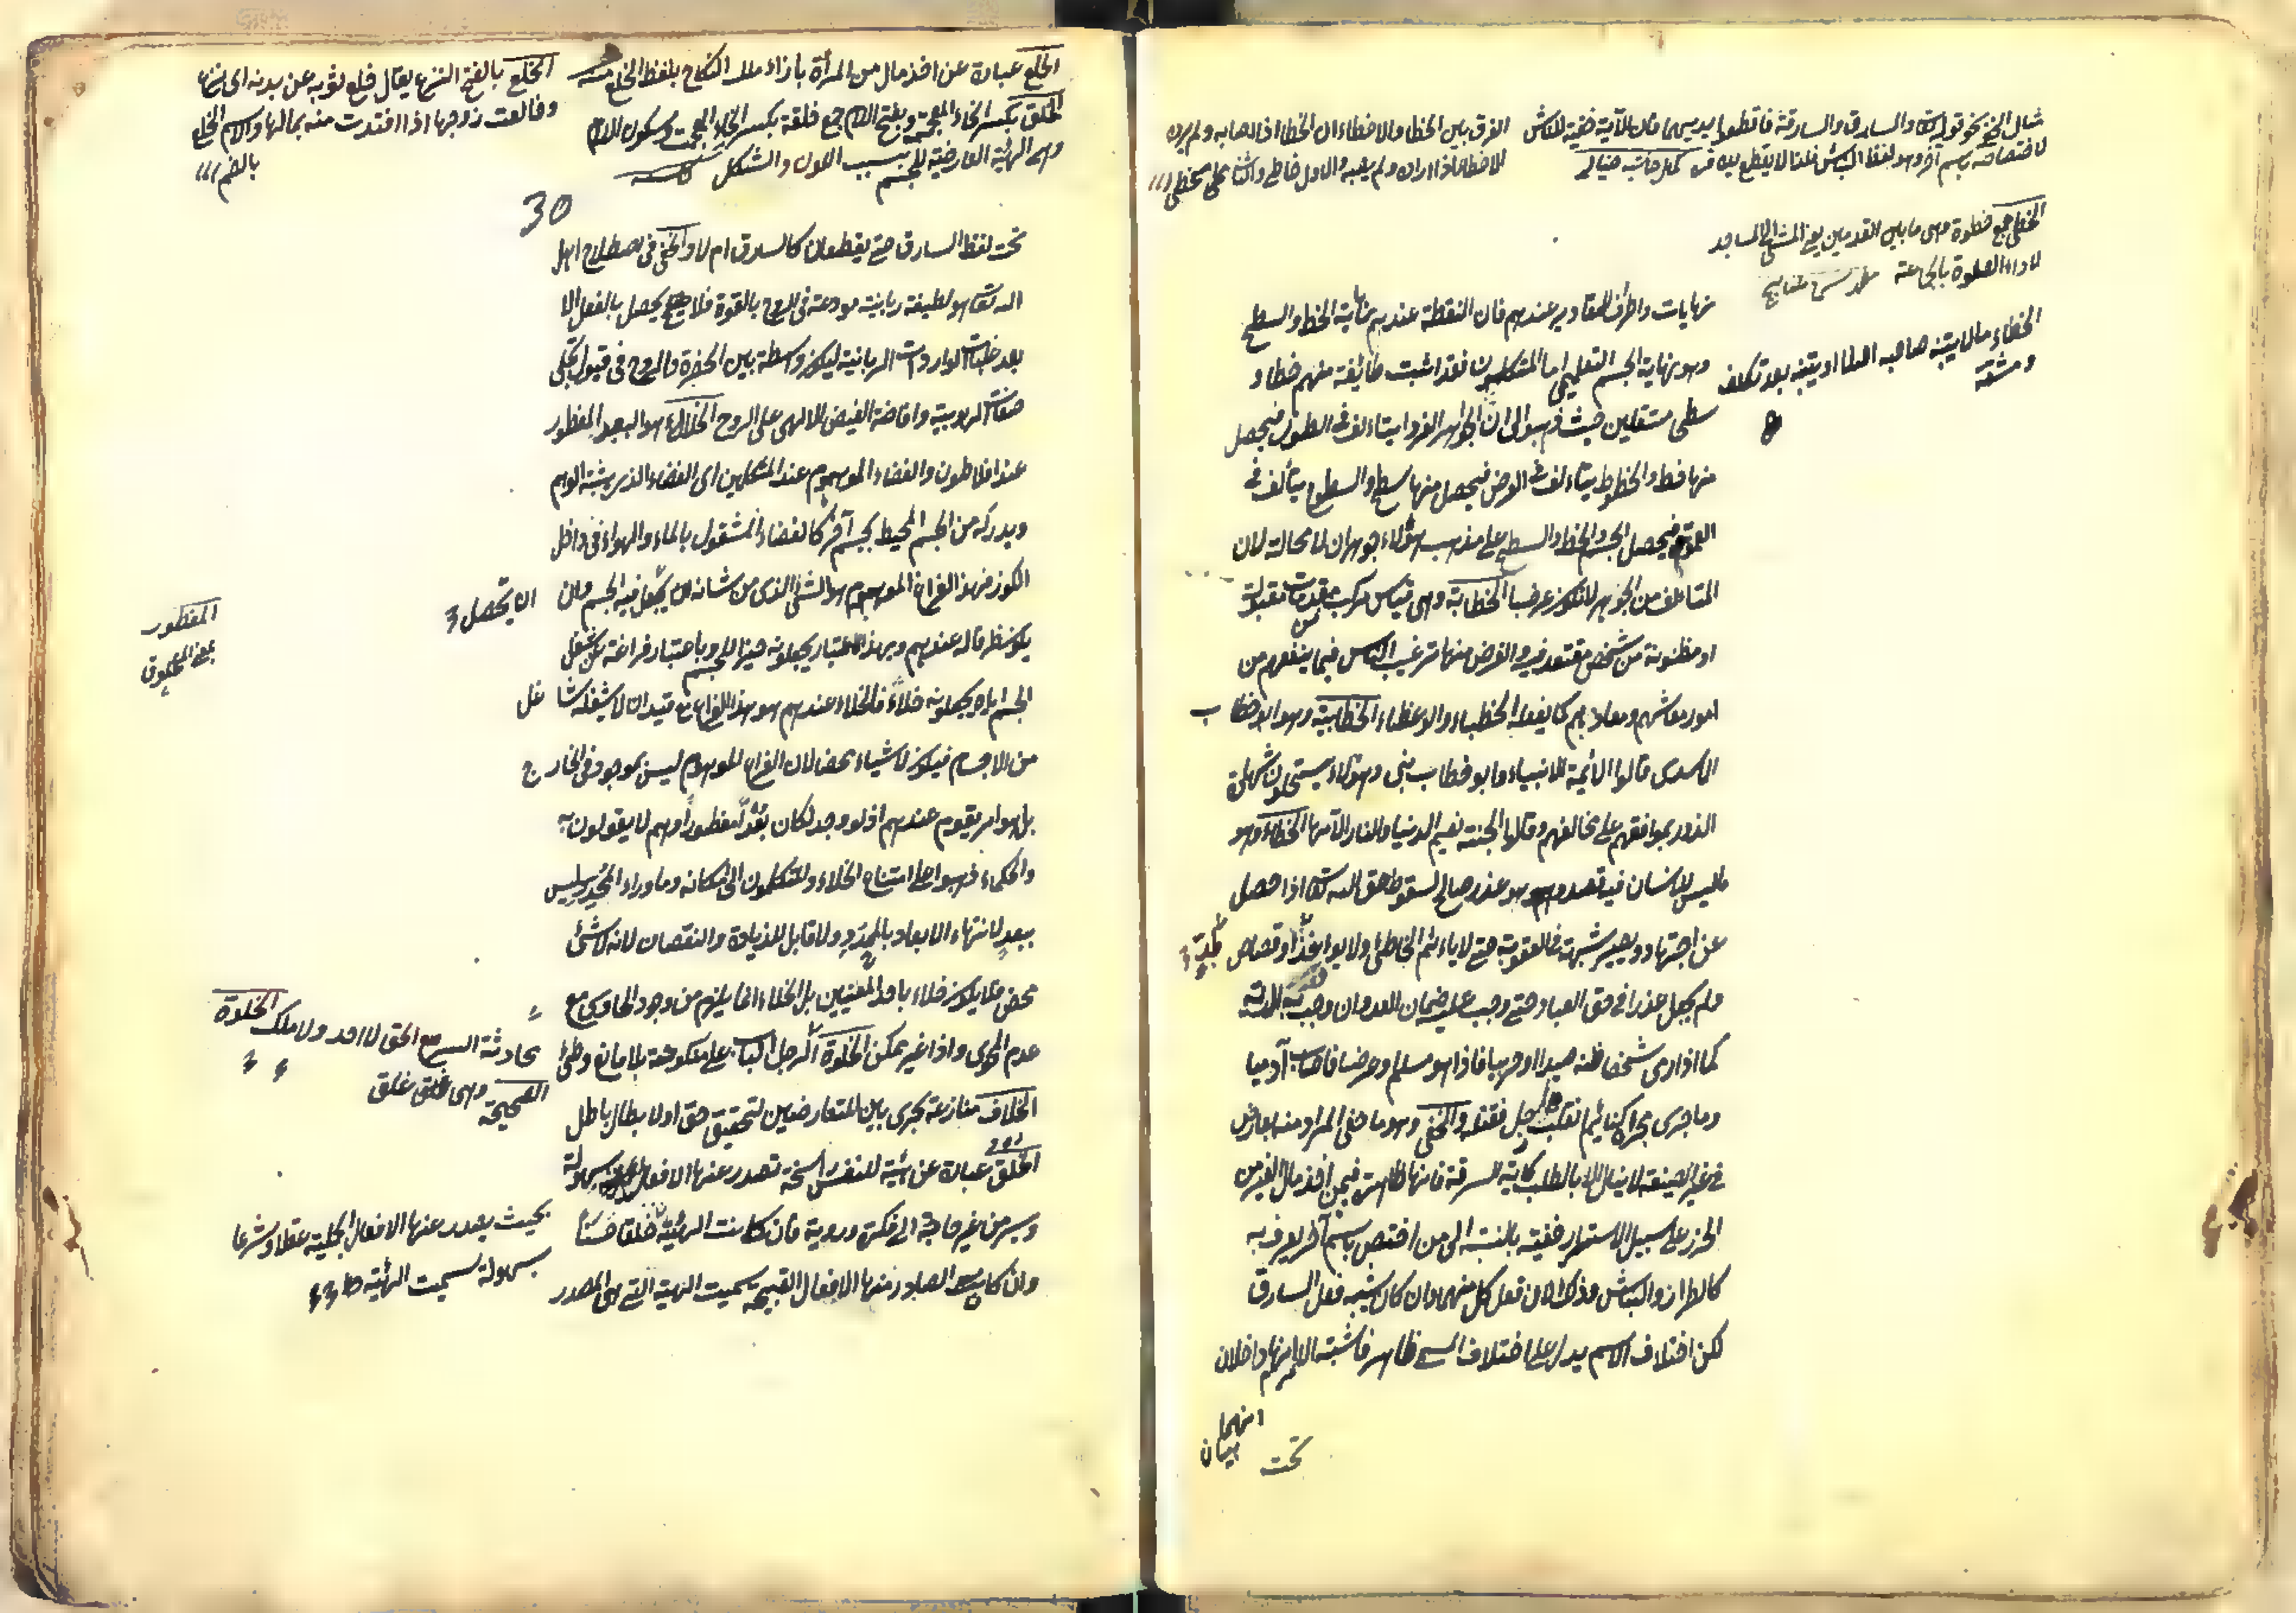 مثال الخفي نحو قوله تعالى والسارق والسارقة فاقطعوا ايديهما فان الآية خفية للنباش
لاختصاصه باسم آخر وهو لفظ النباش فلذا لا يقطع يده
الفرق بين الخطا والاخطاء ان الخطا اذا اصابه ولم يرده
الاخطاء اذا اراده ولم يصبه والاول خاطئ والثاني مخطئ
الخطى جمع خطوة وهى ما بين القدمين يعنى المشى الى المساجد
لاداء الصلوة بالجماعة
الخطاء ما لا يتنبه صاحبه اصلا او يتنبه بعد تكلف
ومشقة
نهايات واطراف للمقادير عندهم فان النقطة عندهم نهاية الخط والسطح
وهو نهاية الجسم التعليمى اما المتكلمون فقد اثبت طائفة منهم خطا و
سطحا مستقلين حيث ذهبوا الى ان الجواهر الفردة يتاءلف فى الطول فيحصل
منها خط والخطوط يتاءلف فى العرض فيحصل منها سطح والسطوح يتألف فى
العمق فيحصل الجسم والخط والسطح على مذهب هؤلاء جوهران لا محالة لان
المتاءلف من الجوهر لا يكون عرضا الخطابة وهى قياس مركب من مقدمات مقبولة
او مظنونة من شخص معتقد فيه والغرض منها ترغيب الناس فيما ينفعهم من
امور معاشهم ومعادهم كما يفعله الخطباء والوعظاء الخطابية وهو ابو خطاب
الاسدى قالوا الائمة الانبياء وابو خطاب نبى وهؤلاء يستحلون شهادة
الزور بموافقهم على مخالفهم وقالوا الجنة نعيم الدنيا والنار آلامها الخطاء وهو
ما ليس للانسان فيه قصد وهو عذر صالح لسقوط حق الله تعالى اذا حصل
عن اجتهاد ويصير شبهة فى العقوبة حتى لا ياءثم الخاطئ ولا يواخذ بحد او قصاص
ولم يجعل عذرا فى حق العباد حتى وجب عليه ضمان العدوان ووجب به الدية
كما اذا رمى شخصا ظنه صيدا او حربيا فاذا هو مسلم او غرضا فاصاب آدميا
وما جرى مجراه كنائم انقلب على رجل فقتله والخفى وهو ما خفى المراد منه بعارض
فى غير الصيغة لا ينال الا بالطلب كآية السرقة فانها ظاهرة فيمن اخذ مال الغير من
الحرز على سبيل الاستتار خفية بالنسبة الى من اختص باسم آخر يعرف به
كالطرار والنباش وذلك لان فعل كل منهما وان كان يشبه فعل السارق
لكن اختلاف الاسم يدل على اختلاف المسمى ظاهرا فاشتبه الامر انهما داخلان
انهما
تحت
الخلع عبارة عن اخذ مال من المرأة بازاء ملك النكاح بلفظ الخلع
الخلق بكسر الخاء المعجمة وبفتح اللام جمع خلقة بكسر الخاء المعجمة وسكون اللام
وهى الهيئة العارضية للجسم بسبب اللون والشكل
الخلع بالفتح النزع يقال خلع ثوبه عن بدنه اى نزع
وخالعت زوجها اذا افتدت منه بمالها والاسم الخلع
بالضم
30
تحت لفظ السارق حتى يقطعان كالسارق ام لا والخفى فى اصطلاح اهل
الله تعالى هو لطيفة ربانية مودعة فى الروح بالقوة فلا يحصل بالفعل الا
بعد غلبات الواردات الربانية ليكون واسطة بين الحضرة والروح فى قبول تجلى
صفات الربوبية وافاضة الفيض الالهى على الروح الخلاء هو البعد المفطور
عند افلاطون والفضاء الموهوم عند المتكلمين اى الفضاء الذى يثبته الوهم
ويدركه من الجسم المحيط بجسم آخر كالفضاء المشغول بالماء والهواء فى داخل
الكوز فهذا الفراغ الموهوم هو الشئ الذى من شانه ان يحصل فيه الجسم وان
ان يحصل
يكون ظرفا له عندهم وبهذا الاعتبار يجعلونه حيزا للجسم وباعتبار فراغه عن شغل
الجسم اياه يجعلونه خلاء فالخلاء عندهم هو هذا الفراغ مع قيد ان لا يشغله شاغل
من الاجسام فيكون لا شياء محضا لان الفراغ الموهوم ليس بموجود فى الخارج
بل هو امر موهوم عندهم اذ لو وجد لكان بعدا مفطورا وهم لا يقولون به
والحكماء ذهبوا الى امتناع الخلاء والمتكلمون الى امكانه وما وراء المحدد ليس
ببعد لانتهاء الابعاد بالمحدد ولا قابل للزيادة والنقصان لانه لا شئ
محض فلا يكون خلاء باحد المعنيين بل الخلاء انما يلزم من وجود الحاوى مع
عدم المحوى وذا غير ممكن الخلوة
محادثة السر مع الحق لا احد ولا ملك الخلوة
الصحيحة وهى غلق
المفطور
الخلاف منازعة تجرى بين المتعارضين لتحقيق حق او لابطال باطل
الخلق عبارة عن هيئة للنفس راسخة تصدر عنها الافعال بسهولة
ويسر من غير حاجة الى فكر وروية فان كانت الهيئة خلقا حسنا
بحيث يصدر عنها الافعال الجميلة عقلا وشرعا
بسهولة سميت الهيئة
وان كان الصادر منها الافعال القبيحة سميت الهيئة التى هى المصدر